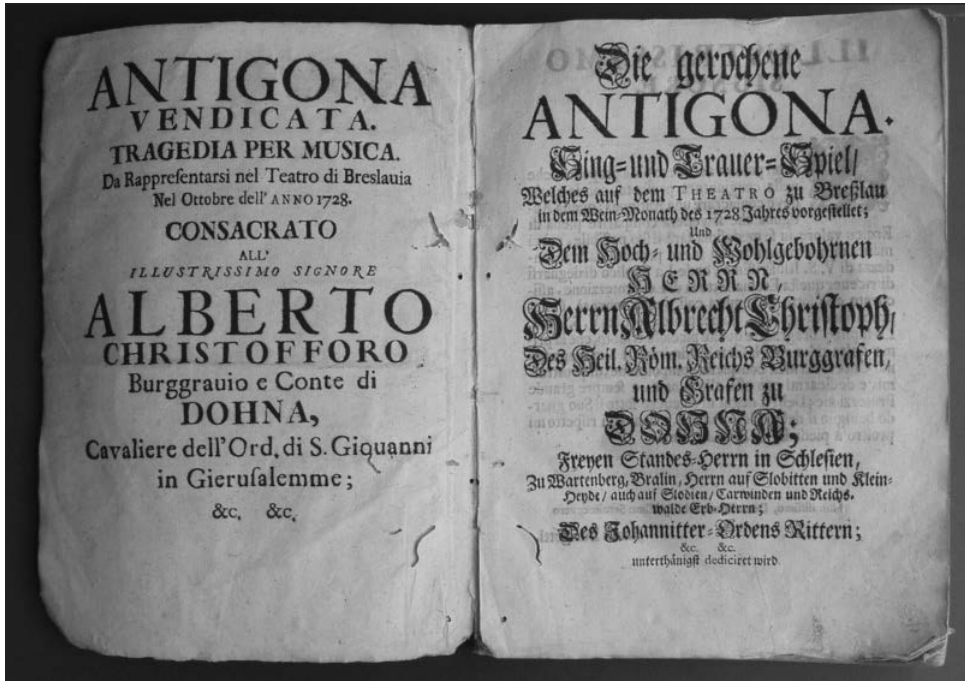 ANTIGONA
VENDICATA.
TRAGEDIA PER MUSICA.
Da Rappreſentarsi nel Teatro di Breslauia
Nel Ottobre dell' ANNO 1728.
CONSACRATO
ALL'
ILLUSTRISSIMO SIGNORE
ALBERTO
CHRISTOFFORO
Burggrauio e Conte di
DOHNA,
Cavaliere dell'Ord. di S. Giouanni
in Gieruſalemme;
&c. &c.
Die gerochene
ANTIGONA.
Sing-und Trauer-Spiel/
Welches auf dem THEATRO zu Breßlau
in dem Wein-Monath des 1728 Jahres vorgeſtellet;
Und
Dem Hoch- und Wohlgebohrnen
HERRN,
Herrn Albrecht Chriſtoph,
Des Heil. Röm. Reichs Burggrafen,
und Grafen zu
DOHNA;
Freyen Standes-Herrn in Schleſien,
Zu Wartenberg, Bralin, Herrn auf Slobitten und Klein-
Heyde/ auch auf Slodien/ Carwinden und Reichs-
walde Erb-Herrn;
Des Johannitter-Ordens Rittern;
&c. &c.
unterthänigſt dediciret wird